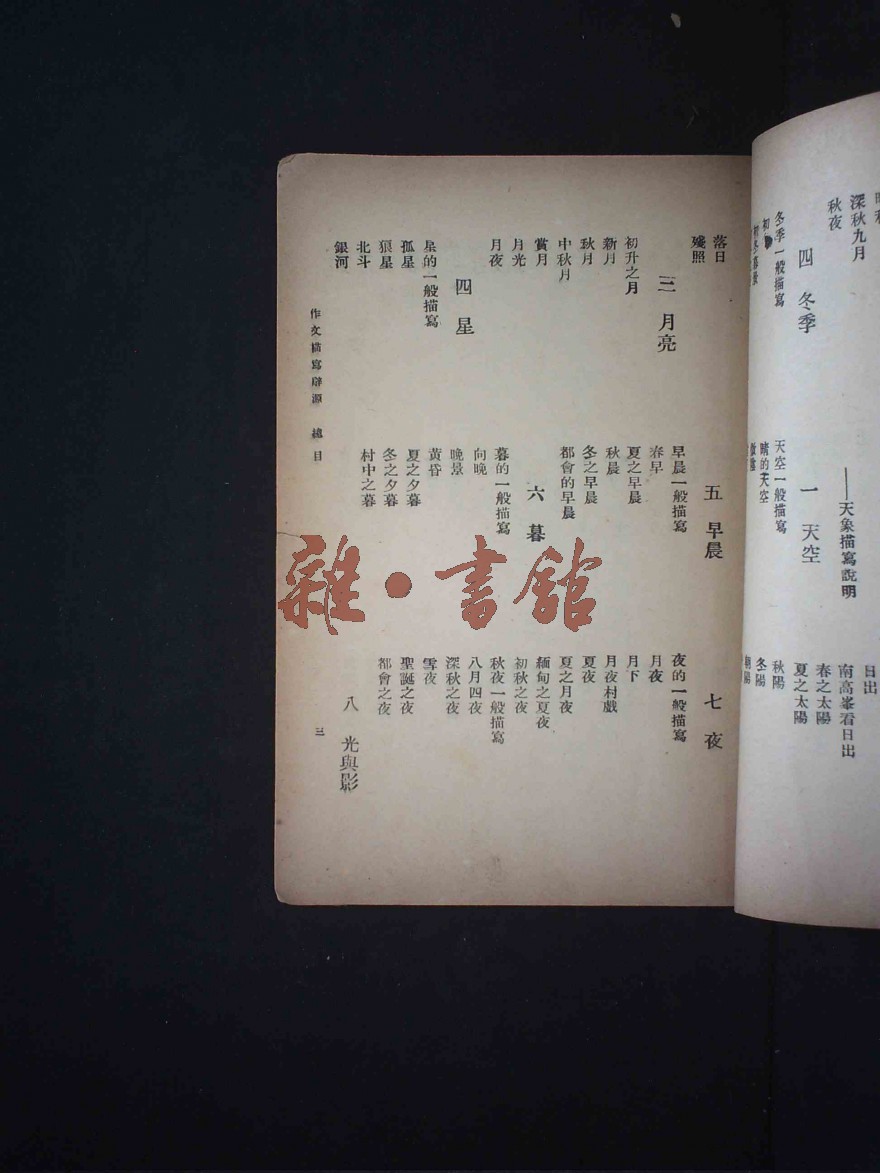 深秋九月
秋夜
四 冬季
冬季一般描寫
初
——天象描寫說明
一 天空
天空一般描寫
晴的天空
日出
南高峯看日出
春之太陽
夏之太陽
秋陽
冬陽
朝陽
落日
殘照
三 月亮
初升之月
新月
秋月
中秋月
賞月
月光
月夜
四 星
星的一般描寫
孤星
狼星
北斗
銀河
五 早晨
早晨一般描寫
春早
夏之早晨
秋晨
冬之早晨
都會的早晨
六 暮
暮的一般描寫
向晚
晚景
黃昏
夏之夕暮
冬之夕暮
村中之暮
七 夜
夜的一般描寫
月夜
月下
月夜村戲
夏夜
夏之月夜
緬甸之夏夜
初秋之夜
秋夜一般描寫
八月四夜
深秋之夜
雪夜
聖誕之夜
都會之夜
八 光與影
作文描寫辭源 總目
三
雜·書館